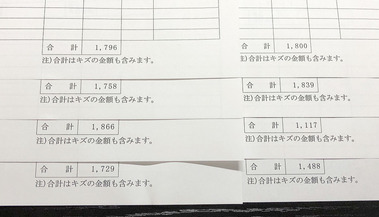 合　計　1,796
注)合計はキズの金額も含みます。
合　計　1,758
注)合計はキズの金額も含みます。
合　計　1,866
注)合計はキズの金額も含みます。
合　計　1,729
注)合計はキズの金額も含みます。
合　計　1,800
注)合計はキズの金額も含みます。
合　計　1,839
注)合計はキズの金額も含みます。
合　計　1,117
注)合計はキズの金額も含みます。
合　計　1,488
注)合計はキズの金額も含みます。